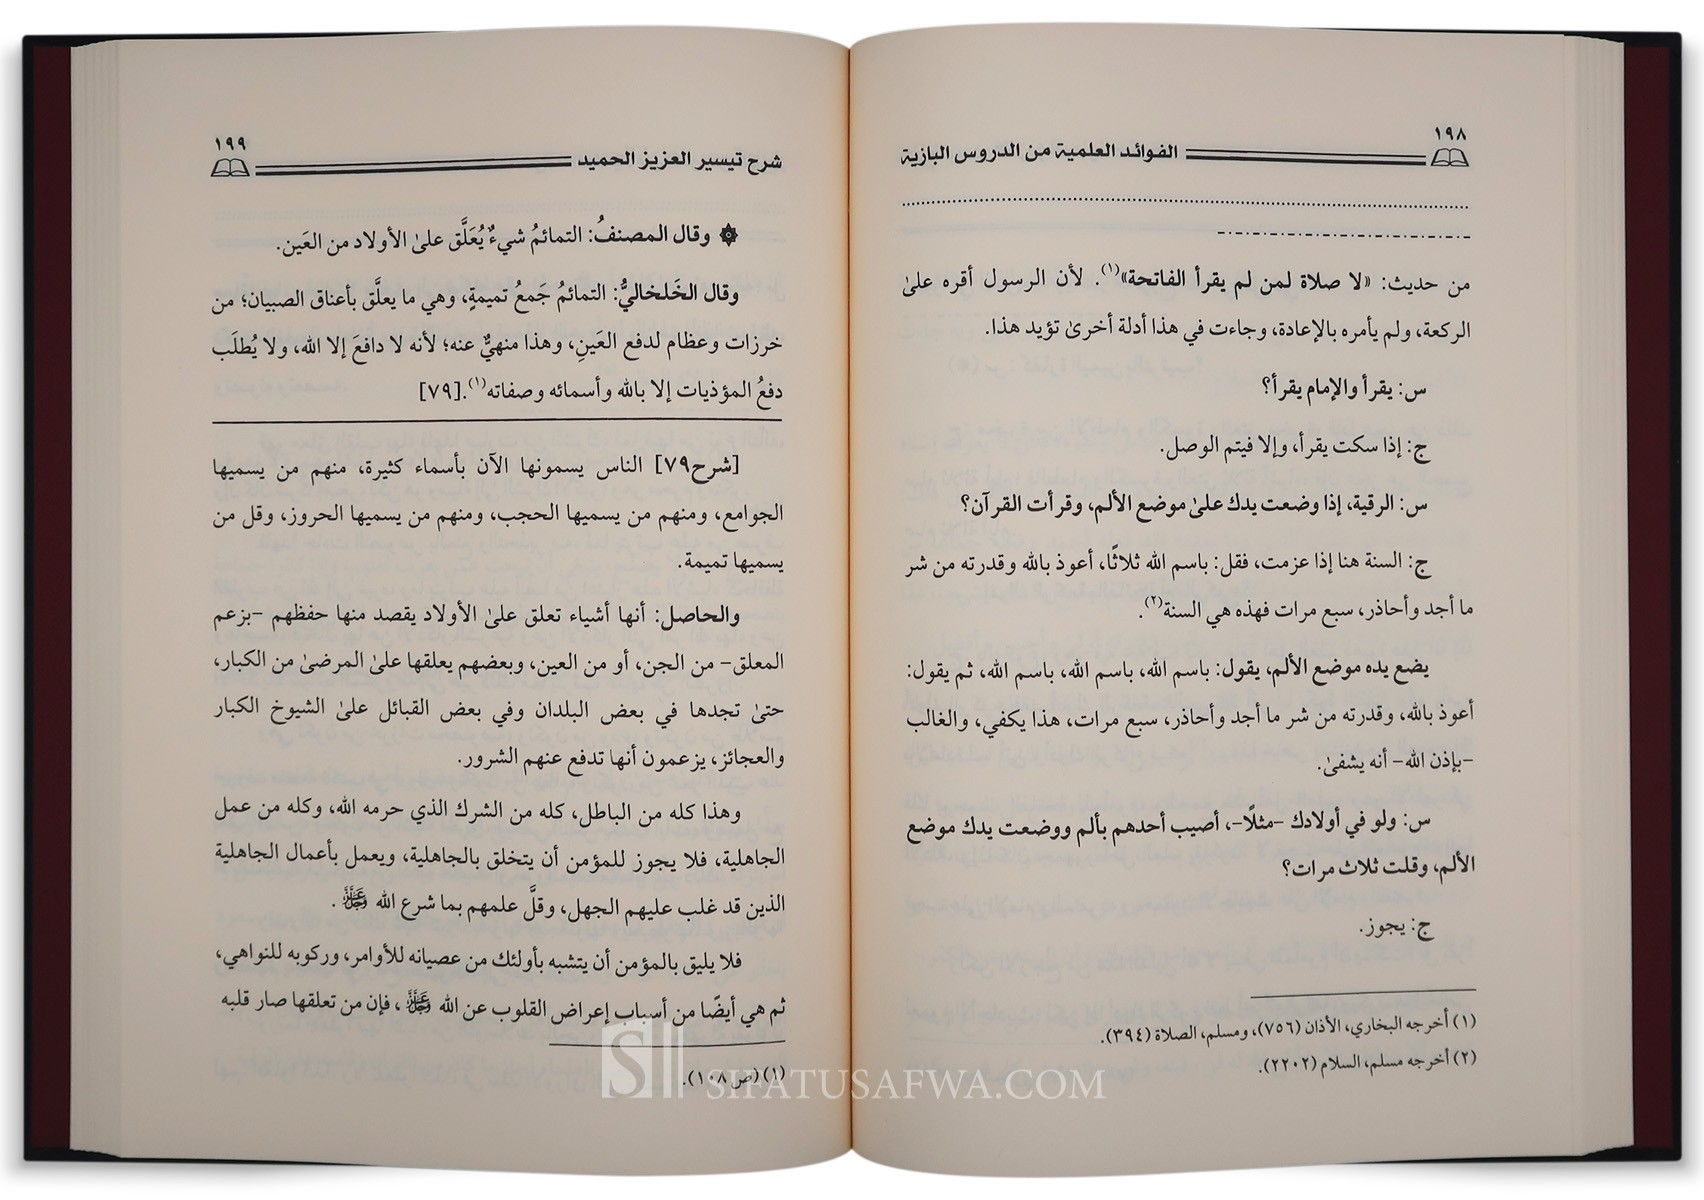 ١٩٨
الفوائد العلمية من الدروس البازية
من حديث: «لا صلاة لمن لم يقرأ الفاتحة»(١). لأن الرسول أقره علىٰ
الركعة، ولم يأمره بالإعادة، وجاءت في هذا أدلة أخرىٰ تؤيد هذا.
س: يقرأ والإمام يقرأ؟
ج: إذا سكت يقرأ، وإلا فيتم الوصل.
س: الرقية، إذا وضعت يدك علىٰ موضع الألم، وقرأت القرآن؟
ج: السنة هنا إذا عزمت، فقل: باسم الله ثلاثًا، أعوذ بالله وقدرته من شر
ما أجد وأحاذر، سبع مرات فهذه هي السنة(٢).
يضع يده موضع الألم، يقول: باسم الله، باسم الله، باسم الله، ثم يقول:
أعوذ بالله، وقدرته من شر ما أجد وأحاذر، سبع مرات، هذا يكفي، والغالب
-بإذن الله- أنه يشفىٰ.
س: ولو في أولادك -مثلًا-، أصيب أحدهم بألم ووضعت يدك موضع
الألم، وقلت ثلاث مرات؟
ج: يجوز.
(١) أخرجه البخاري، الأذان (٧٥٦)، ومسلم، الصلاة (٣٩٤).
(٢) أخرجه مسلم، السلام (٢٢٠٢).
شرح تيسير العزيز الحميد
١٩٩
وقال المصنفُ: التمائمُ شيءٌ يُعَلَّق علىٰ الأولاد من العَين.
وقال الخَلخاليُّ: التمائمُ جَمعُ تميمةٍ، وهي ما يعلَّق بأعناق الصبيان؛ من
خرزات وعظام لدفع العَينِ، وهذا منهيٌّ عنه؛ لأنه لا دافعَ إلا الله، ولا يُطلَب
دفعُ المؤذيات إلا بالله وأسمائه وصفاته(١).[٧٩]
[شرح٧٩] الناس يسمونها الآن بأسماء كثيرة، منهم من يسميها
الجوامع، ومنهم من يسميها الحجب، ومنهم من يسميها الحروز، وقل من
يسميها تميمة.
والحاصل: أنها أشياء تعلق علىٰ الأولاد يقصد منها حفظهم -بزعم
المعلق- من الجن، أو من العين، وبعضهم يعلقها علىٰ المرضىٰ من الكبار،
حتىٰ تجدها في بعض البلدان وفي بعض القبائل علىٰ الشيوخ الكبار
والعجائز، يزعمون أنها تدفع عنهم الشرور.
وهذا كله من الباطل، كله من الشرك الذي حرمه الله، وكله من عمل
الجاهلية، فلا يجوز للمؤمن أن يتخلق بالجاهلية، ويعمل بأعمال الجاهلية
الذين قد غلب عليهم الجهل، وقلَّ علمهم بما شرع الله عَزَّوَجَلَّ.
فلا يليق بالمؤمن أن يتشبه بأولئك من عصيانه للأوامر، وركوبه للنواهي،
ثم هي أيضًا من أسباب إعراض القلوب عن الله عَزَّوَجَلَّ، فإن من تعلقها صار قلبه
(١) (ص ١٠٨).
S SIFATUSAFWA.COM